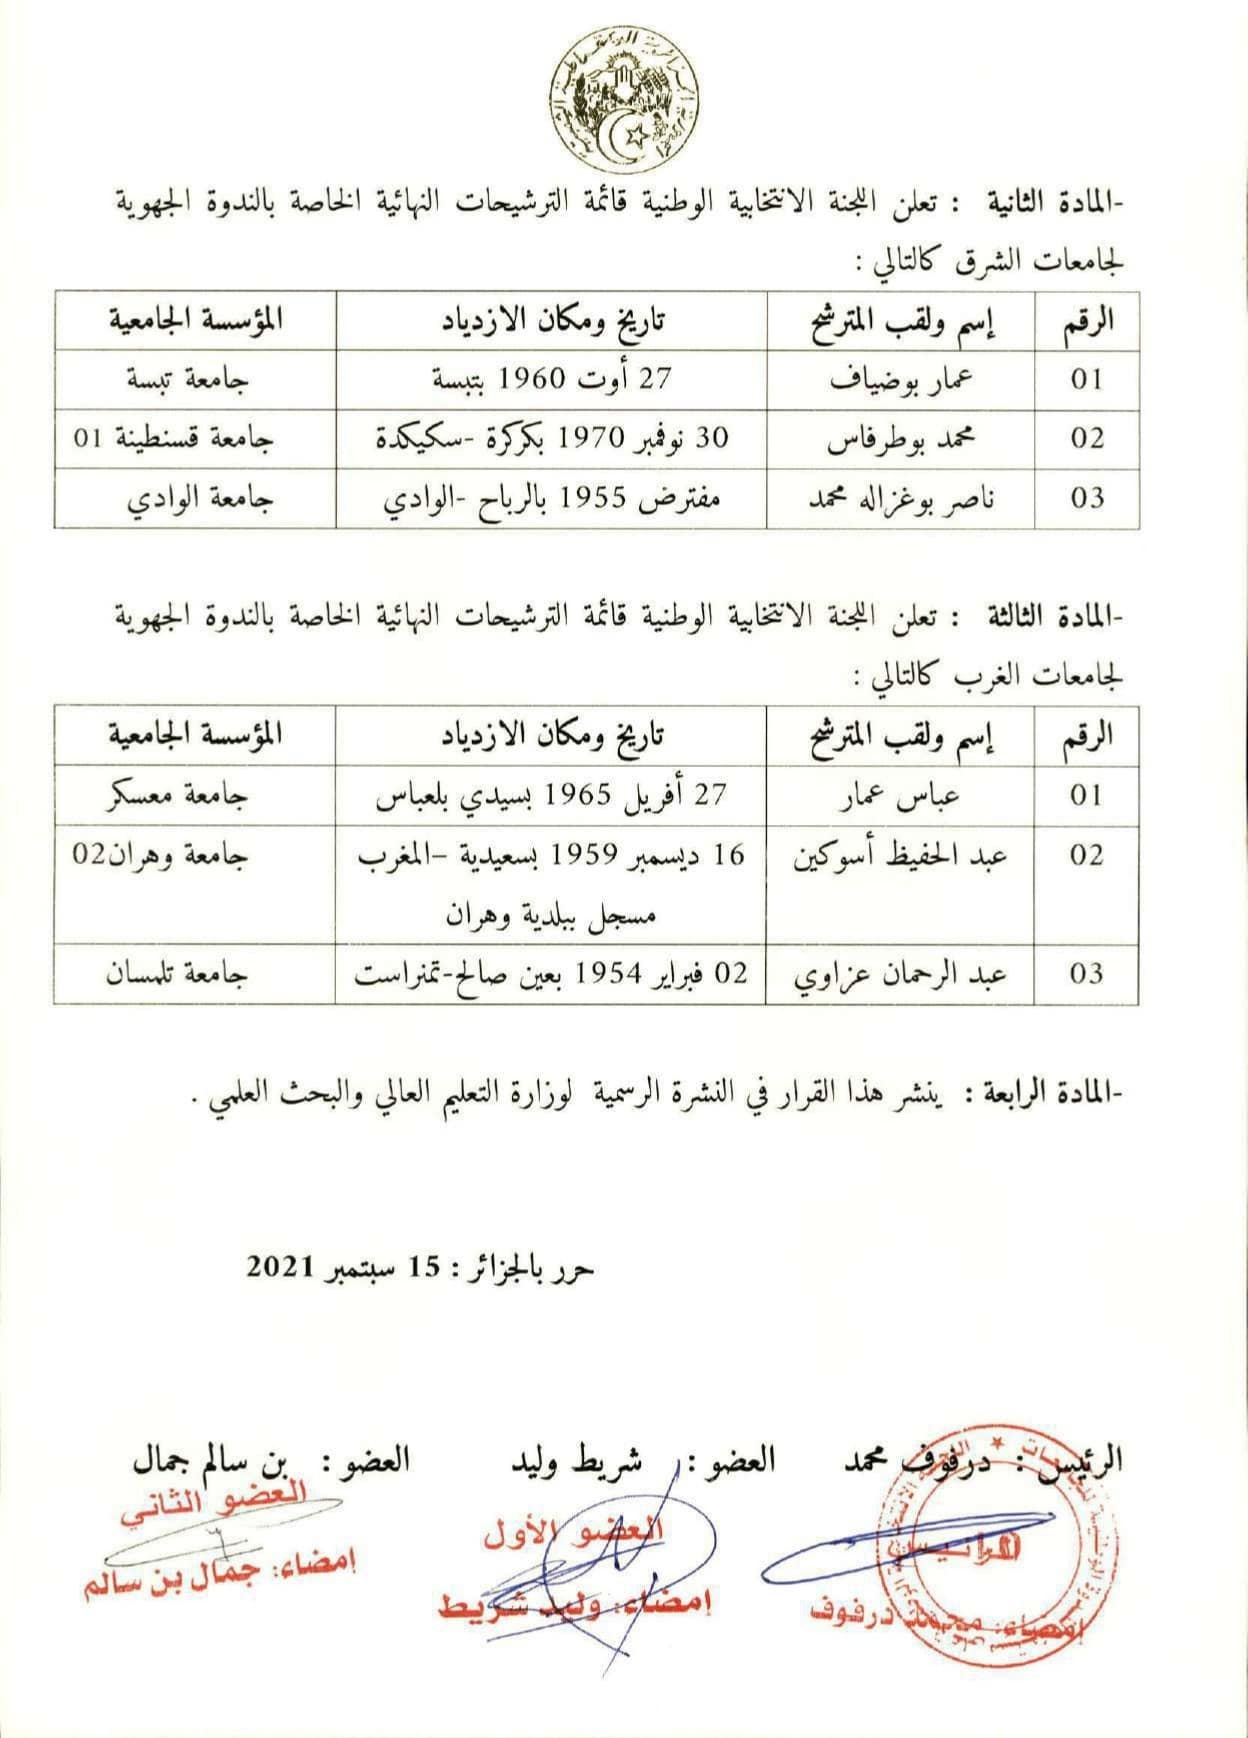 -المادة الثانية : تعلن اللجنة الانتخابية الوطنية قائمة الترشيحات النهائية الخاصة بالندوة الجهوية
لجامعات الشرق كالتالي :
الرقم إسم ولقب المترشح تاريخ ومكان الازدياد المؤسسة الجامعية
01 عمار بوضياف 27 أوت 1960 بتبسة جامعة تبسة
02 محمد بوطرفاس 30 نوفمبر 1970 بكركرة -سكيكدة جامعة قسنطينة 01
03 ناصر بوغزاله محمد مفترض 1955 بالرباح -الوادي جامعة الوادي
-المادة الثالثة : تعلن اللجنة الانتخابية الوطنية قائمة الترشيحات النهائية الخاصة بالندوة الجهوية
لجامعات الغرب كالتالي :
الرقم إسم ولقب المترشح تاريخ ومكان الازدياد المؤسسة الجامعية
01 عباس عمار 27 أفريل 1965 بسيدي بلعباس جامعة معسكر
02 عبد الحفيظ أسوكين 16 ديسمبر 1959 بسعيدية -المغرب جامعة وهران02
مسجل ببلدية وهران
03 عبد الرحمان عزاوي 02 فبراير 1954 بعين صالح-تمنراست جامعة تلمسان
-المادة الرابعة : ينشر هذا القرار في النشرة الرسمية لوزارة التعليم العالي والبحث العلمي .
حرر بالجزائر : 15 سبتمبر 2021
الرئيس : درفوف محمد العضو : شريط وليد العضو : بن سالم جمال
الرئيس العضو الأول العضو الثاني
إمضاء: محمد درفوف إمضاء: وليد شريط إمضاء: جمال بن سالم